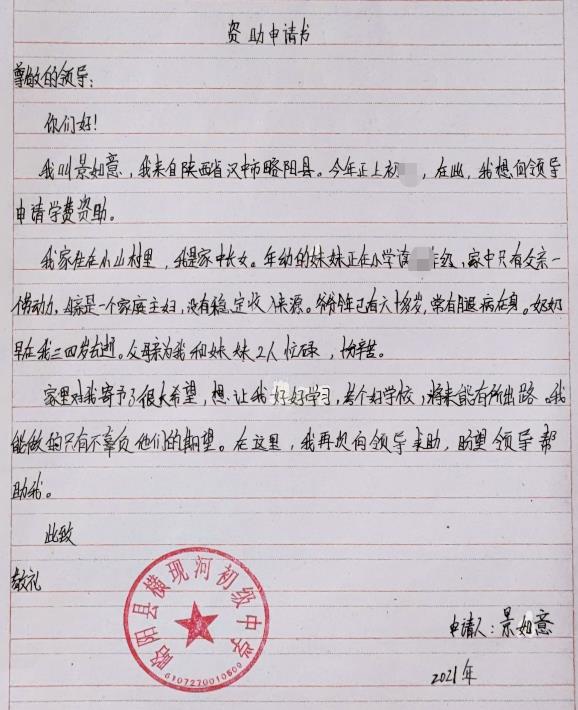 资助申请书
尊敬的领导：
你们好！
我叫景如意，我来自陕西省汉中市略阳县。今年正上初，在此，我想向领导
申请学费资助。
我家住在小山村里，我是家中长女。年幼的妹妹正在小学读年级，家中只有父亲一
个劳动力，母亲是一个家庭主妇，没有稳定收入来源。爷爷今年已有六十多岁，常有腿病在身。奶奶
早在我三四岁去逝。父母亲为我和妹妹2人忙碌，很辛苦。
家里对我寄予了很大希望，想让我好好学习，考个好学校，将来能有所出路。我
能做的只有不辜负他们的期望。在这里，我再次向领导求助，盼望领导帮
助我。
此致
敬礼
略阳县横现河初级中学
6107270010509
申请人：景如意
2021年